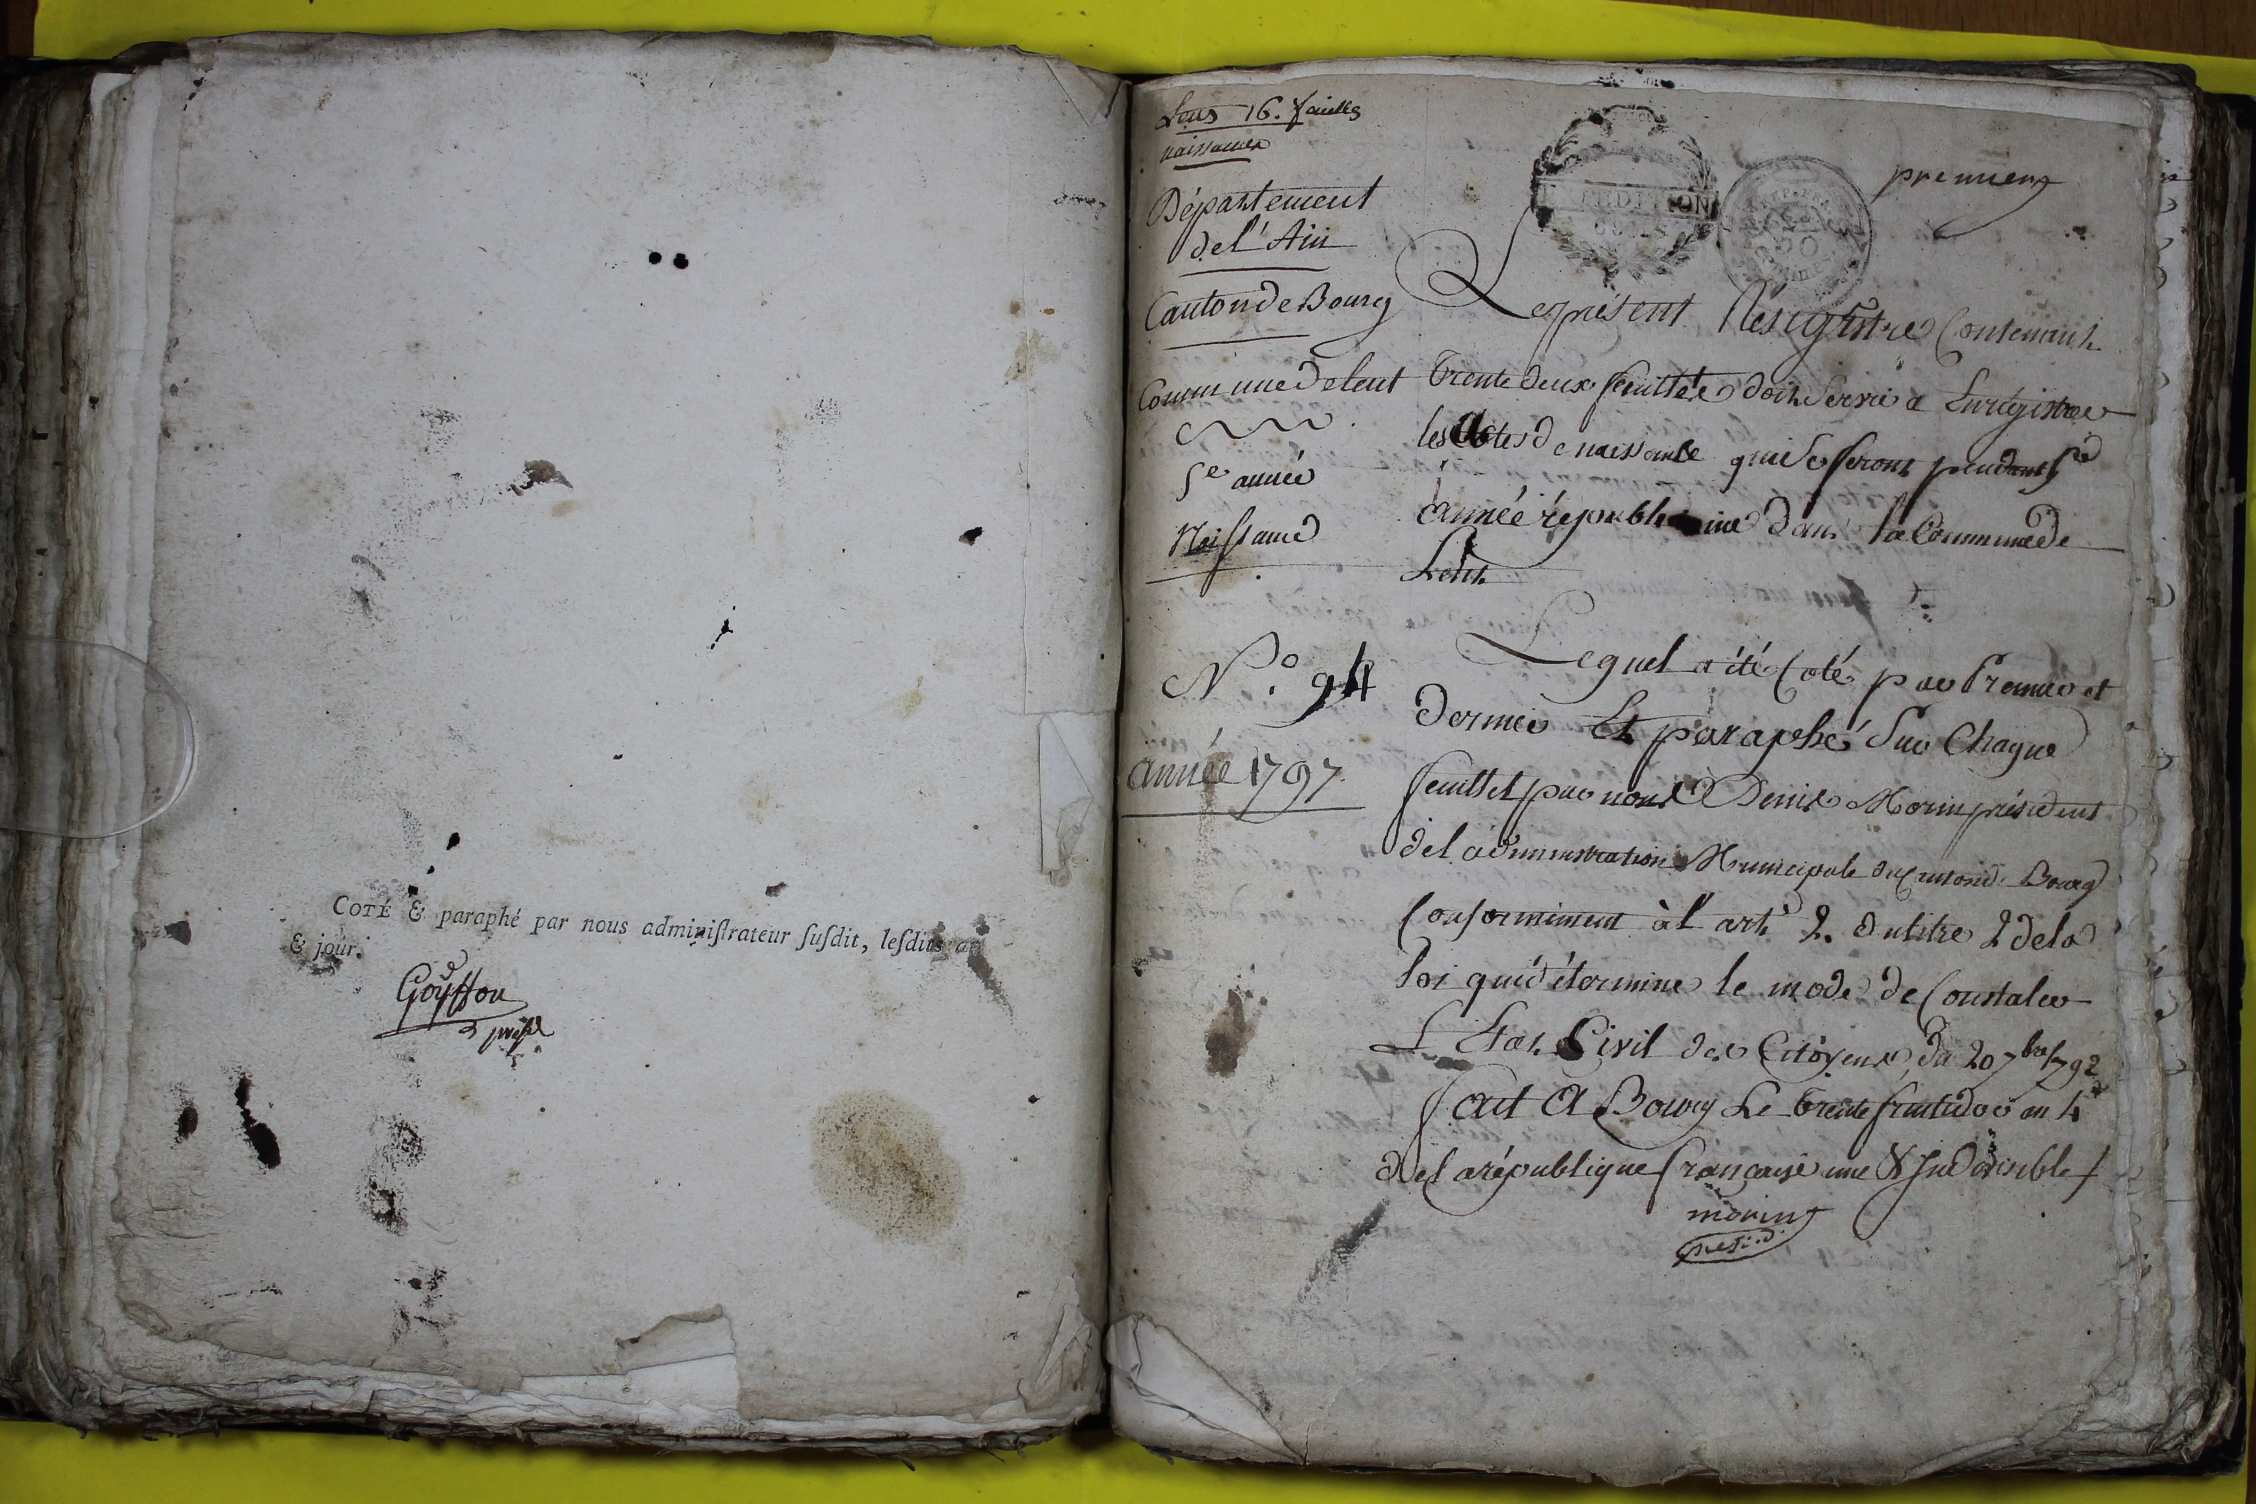 COTÉ & paraphé par nous administrateur susdit, lesdits an
& jour.
Goysson
présid
Lent 16. faeilles
naissances
Département
de l'Ain
Canton de Bourg
Commune de lent
5e année
Naissance
N.o 94
année 1797.
premier
EXPEDITION
Le présent Régistre Contenant
trente deux feuillets doit Servir a Enrégistrer
les Actes de naissance qui Se feront pendant 5e
année républicaine dans la Commune de
Lent
Lequel a été Coté par Premier et
dernier Et paraphé Sur Chaque
feuillet par nous Denis Morin président
de l'administration Municipale du Canton de Bourg
Conformément à l'art. 2. du titre 2 de la
loi qui détermine le mode de Constater
L'Etat Civil des Citoyens, du 20 7bre 1792
fait A Bourg Le trente fructidor an 4e
de la république française une & Indivisible
morin
présid.